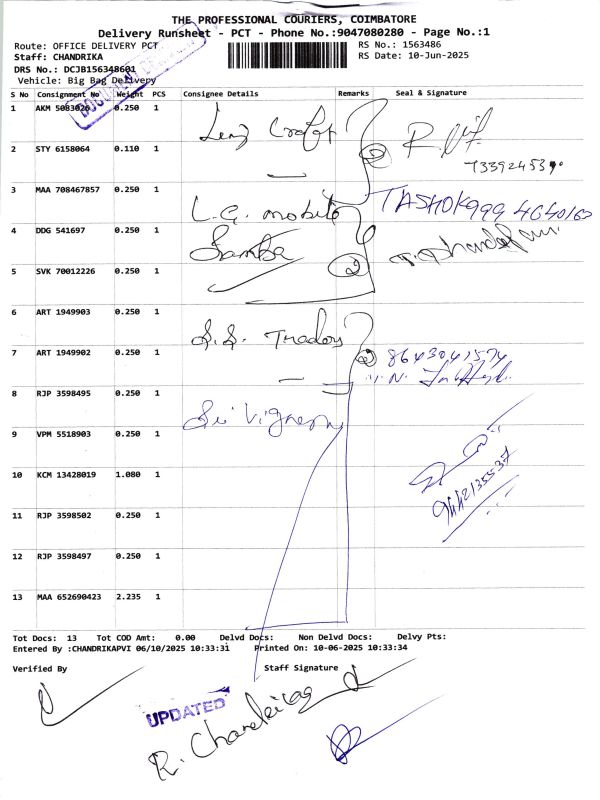 THE PROFESSIONAL COURIERS, COIMBATORE
Delivery Runsheet - PCT - Phone No.:9047080280 - Page No.:1
Route: OFFICE DELIVERY PCT RS No.: 1563486
Staff: CHANDRIKA RS Date: 10-Jun-2025
DRS No.: DCJB156348601
Vehicle: Big Bag Delivery
S No Consignment No Weight PCS Consignee Details Remarks Seal & Signature
1 AKM 5083026 0.250 1
2 STY 6158064 0.110 1
3 MAA 708467857 0.250 1
L.G. mobile
4 DDG 541697 0.250 1
5 SVK 70012226 0.250 1 2
6 ART 1949903 0.250 1
S.S. Tradors
7 ART 1949902 0.250 1 2 8643041574
8 RJP 3598495 0.250 1
Sri Vignesh
9 VPM 5518903 0.250 1
10 KCM 13428019 1.080 1
11 RJP 3598502 0.250 1
12 RJP 3598497 0.250 1
13 MAA 652690423 2.235 1
Tot Docs: 13 Tot COD Amt: 0.00 Delvd Docs: Non Delvd Docs: Delvy Pts:
Entered By :CHANDRIKAPVI 06/10/2025 10:33:31 Printed On: 10-06-2025 10:33:34
Verified By Staff Signature
UPDATED
R. Chandrika